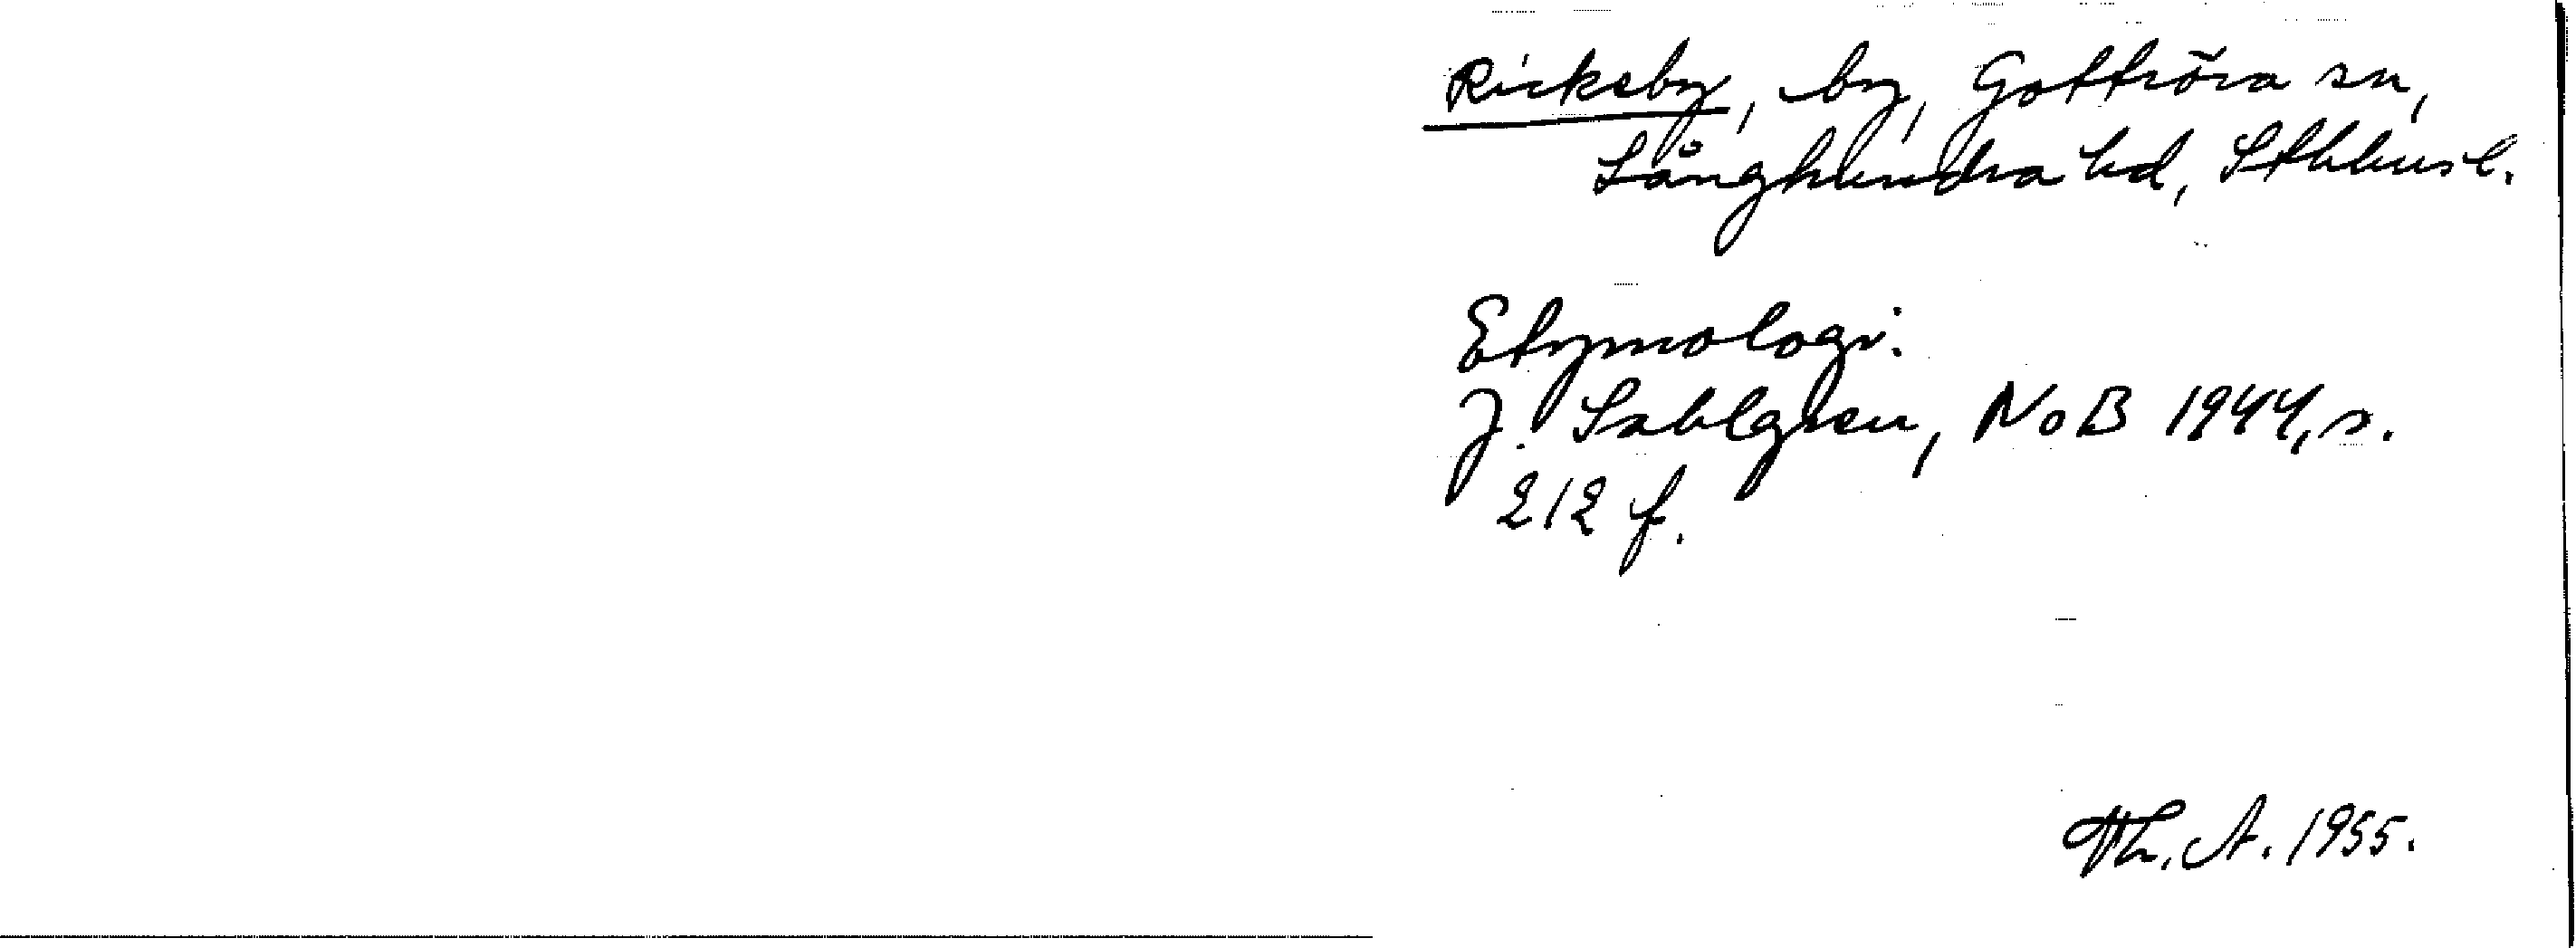 Ricksby, by, Gottröra sn,
Långhundra hd, Sthlms l.
Etymologi:
J. Sahlgren, NoB 1944, s.
212 f.
Th. A. 1955.